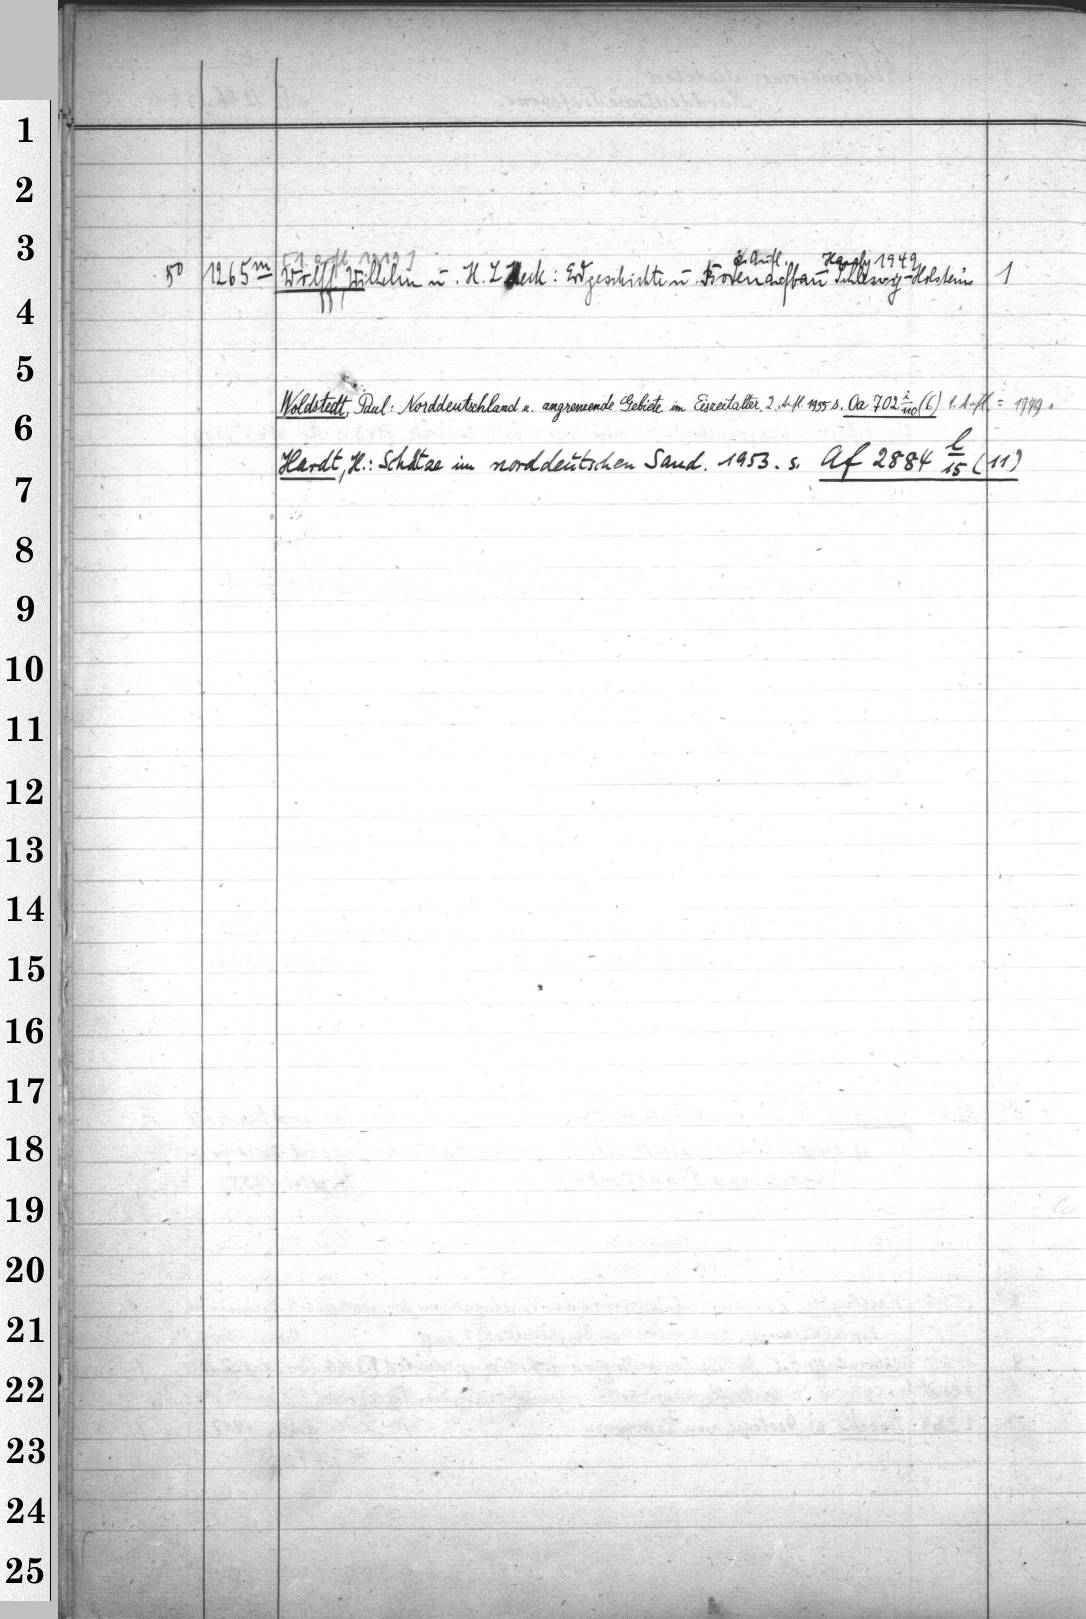 1
2
3
4
5
6
7
8
9
10
11
12
13
14
15
16
17
18
19
20
21
22
23
24
25
[1. Aufl. 1919]
2. Aufl. Hambg 1949
50 1265m Wolff, Wilhelm u. H. L. Heck: Erdgeschichte u. Bodenaufbau Schleswig-Holsteins 1
Woldstedt, Paul: Norddeutschland u. angrenzende Gebiete im Eiszeitalter. 2. Aufl. 1955 s. Oa 702 i/110 (6) 1. Aufl. = 1949.
Hardt, H.: Schätze im norddeutschen Sand. 1953. s. Af 2884 l/15 (11)